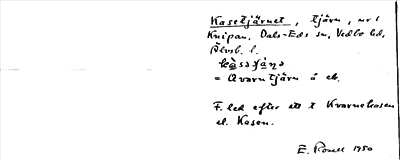 Kasetjärnet, tjärn, nr 1
Knipan, Dals-Eds sn, Vedbo hd,
Älvsb. l.
= Qvarntjärn å ek.
F. led efter ett t Kvarnekasen
el. Kasen.
E. 1950